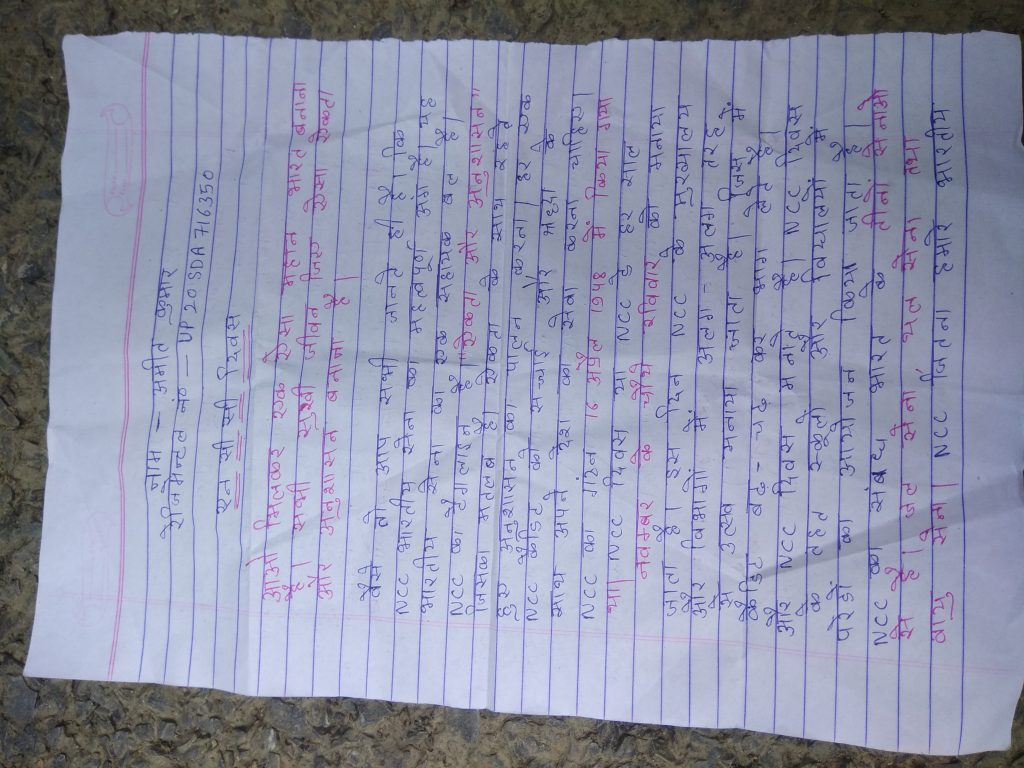 नाम - अमीत कुमार
रेजिमेन्टल न० - UP20SDA716350
एन सी सी दिवस
आओ मिलकर एक ऐसा महान भारत बनाना
है। सभी सुखी जीवन जिए ऐसा एकता
और अनुशासन बनाना है।
वैसे तो आप सभी जानते ही है। कि
NCC भारतीय सेना का महत्वपूर्ण अंग है। यह
भारतीय सेना का एक सहायक बल है।
NCC का टैगलाइन है। "एकता और अनुशासन"
जिसका मतलब है। एकता के साथ रहते
हुए अनुशासन का पालन करना। हर एक
NCC कैडिट को सच्चाई और श्रद्धा के
साथ अपने देश का सेवा करना चाहिये।
NCC का गठन 16 अप्रैल 1948 में किया गया
था। NCC दिवस या NCC डे हर साल
नवम्बर के चौथे रविवार को मनाया
जाता है। इस दिन NCC के मुख्यालय
और विभागों में अलग - अलग तरह
से उत्सव मनाया जाता है। जिस में
कैडिट बढ़ - चढ़ कर भाग लेते है।
और NCC दिवस मनाते है। NCC दिवस
के तहत स्कूलो और विद्यालयों में
परेडों का आयोजन किया जाता है।
NCC का संबंध भारत के तीनों सेनाओ
से है। जल सेना थल सेना तथा
वायु सेना। NCC जितना हमारे भारतीय